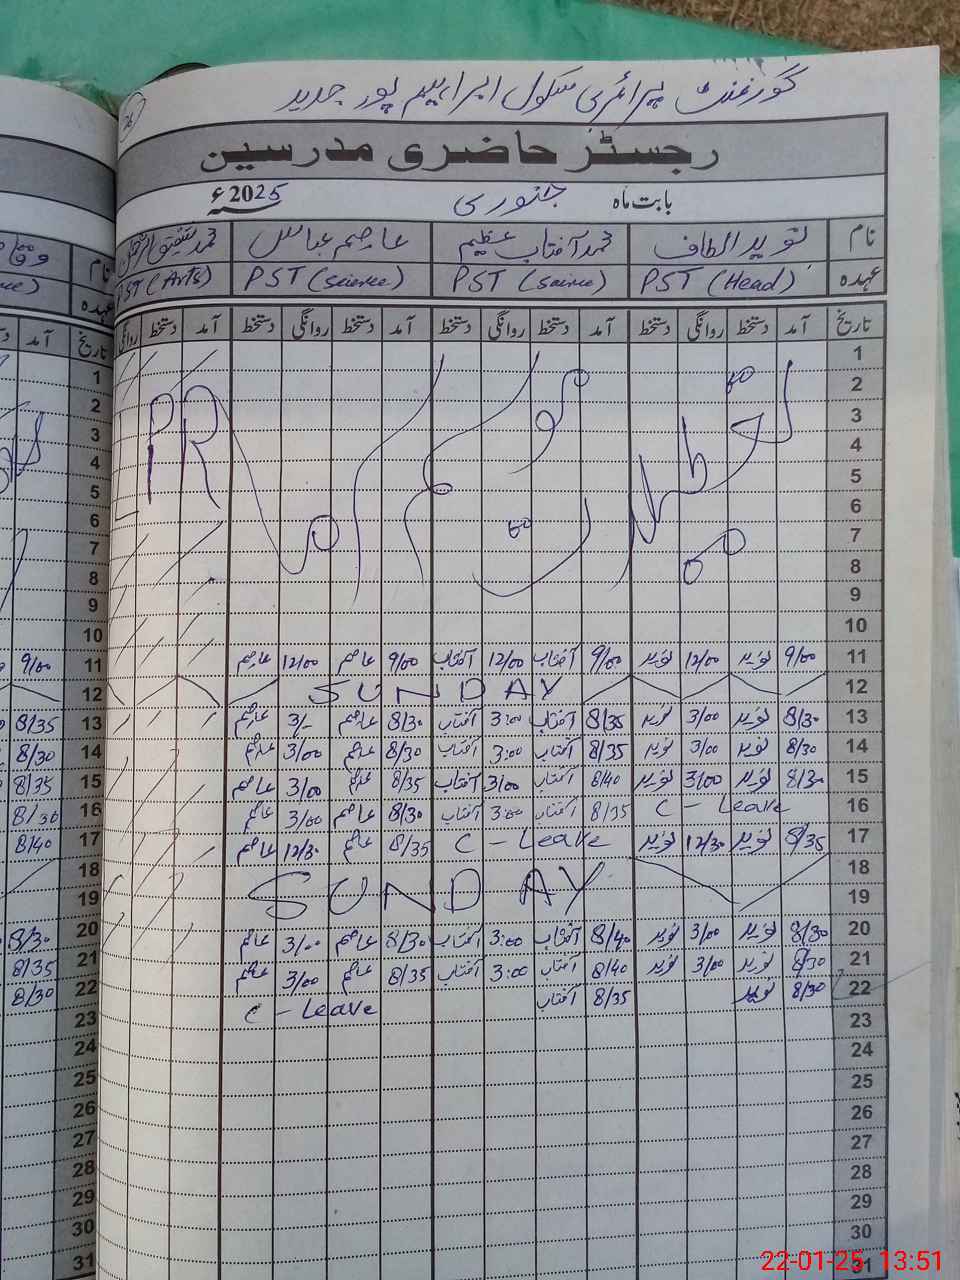 گورنمنٹ پرائمری سکول ابراہیم پور جدید
رجسٹر حاضری مدرسین
بابت ماہ جنوری 2025ء
نام نوید الطاف محمد آفتاب عظیم عاصم عباس
عہدہ PST (Head) PST (Science) PST (Science) PST (Arts)
تاریخ آمد دستخط روانگی دستخط آمد دستخط روانگی دستخط آمد دستخط روانگی دستخط آمد دستخط روانگی
1
2
3
4
5
6
7
8
9
10
PR
11 9/00 نوید 12/00 نوید 9/00 آفتاب 12/00 آفتاب 9/00 عاصم 12/00 عاصم
12 SUNDAY
13 8/30 نوید 3/00 نوید 8/35 آفتاب 3:00 آفتاب 8/30 عاصم 3/- عاصم
14 8/30 نوید 3/00 نوید 8/35 آفتاب 3:00 آفتاب 8/30 عاصم 3/00 عاصم
15 8/30 نوید 3/00 نوید 8/40 آفتاب 3/00 آفتاب 8/35 عاصم 3/00 عاصم
16 C - Leave 8/35 آفتاب 3:00 آفتاب 8/30 عاصم 3/00 عاصم
17 8/35 نوید 12/30 نوید C - Leave 8/35 عاصم 12/30 عاصم
18
19 SUNDAY
20 8/30 نوید 3/00 نوید 8/40 آفتاب 3:00 آفتاب 8/30 عاصم 3/00 عاصم
21 8/30 نوید 3/00 نوید 8/40 آفتاب 3:00 آفتاب 8/35 عاصم 3/00 عاصم
22 8/30 نوید 8/35 آفتاب C - Leave
23
24
25
26
27
28
29
30
31
نام
عہدہ
تاریخ آمد
1
2
3
4
5
6
7
8
9
10
11 9/00
12
13 8/35
14 8/30
15 8/35
16 8/30
17 8/40
18
19
20 8/30
21 8/35
22 8/30
23
24
25
26
27
28
29
30
31
22-01-25 13:51